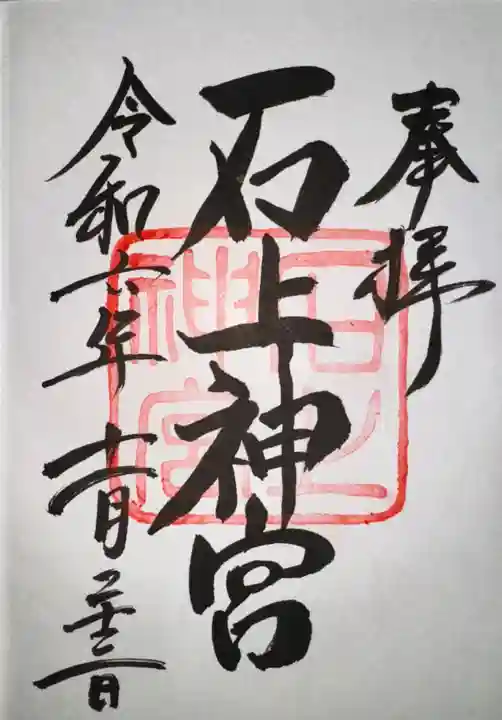 奉拝
石上神宮
石上神宮
令和六年十一月二十日